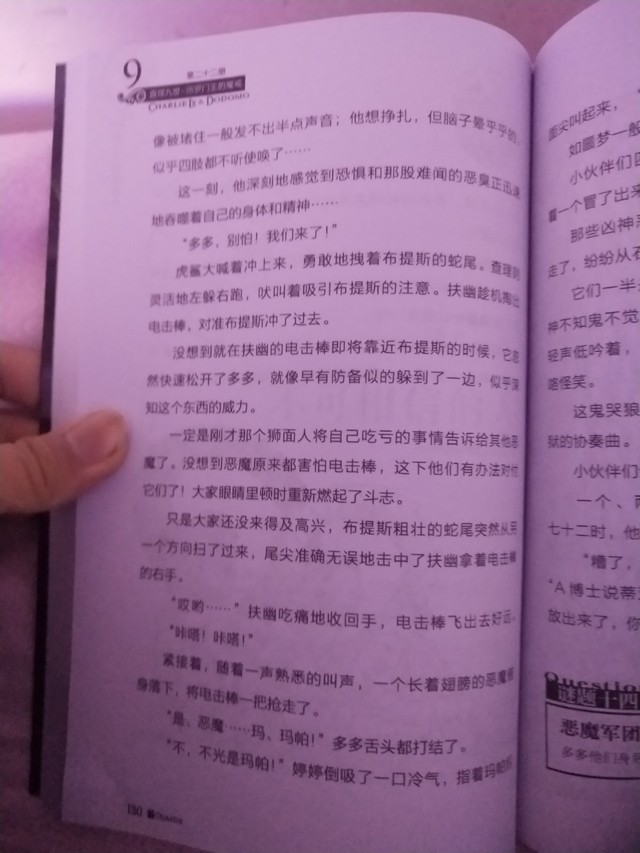 9
第二十二册
CHARLIE IX & DODOMO
像被堵住一般发不出半点声音；他想挣扎，但脑子晕乎乎的，
似乎四肢都不听使唤了……
这一刻，他深刻地感觉到恐惧和那股难闻的恶臭正迅速
地吞噬着自己的身体和精神……
“多多，别怕！我们来了！”
虎鲨大喊着冲上来，勇敢地拽着布提斯的蛇尾。查理则
灵活地左躲右跑，吠叫着吸引布提斯的注意。扶幽趁机掏出
电击棒，对准布提斯冲了过去。
没想到就在扶幽的电击棒即将靠近布提斯的时候，它忽
然快速松开了多多，就像早有防备似的躲到了一边，似乎深
知这个东西的威力。
一定是刚才那个狮面人将自己吃亏的事情告诉给其他恶
魔了。没想到恶魔原来都害怕电击棒，这下他们有办法对付
它们了！大家眼睛里顿时重新燃起了斗志。
只是大家还没来得及高兴，布提斯粗壮的蛇尾突然从另
一个方向扫了过来，尾尖准确无误地击中了扶幽拿着电击棒
的右手。
“哎哟……”扶幽吃痛地收回手，电击棒飞出去好远。
“咔嗒！咔嗒！”
紧接着，随着一声熟悉的叫声，一个长着翅膀的恶魔俯
身落下，将电击棒一把抢走了。
“是、恶魔……玛、玛帕！”多多舌头都打结了。
“不，不光是玛帕！”婷婷倒吸了一口冷气，指着玛帕
130
面尖叫起来，
如噩梦一般
小伙伴们
着一个冒了出来
那些凶神
走了，纷纷从石
它们一半
神不知鬼不觉
轻声低吟着，
咯怪笑。
这鬼哭狼
狱的协奏曲。
小伙伴们
一个、两
七十二时，他
“糟了，
“A博士说蒂
放出来了，你
Question
谜题十四
恶魔军团
多多他们身